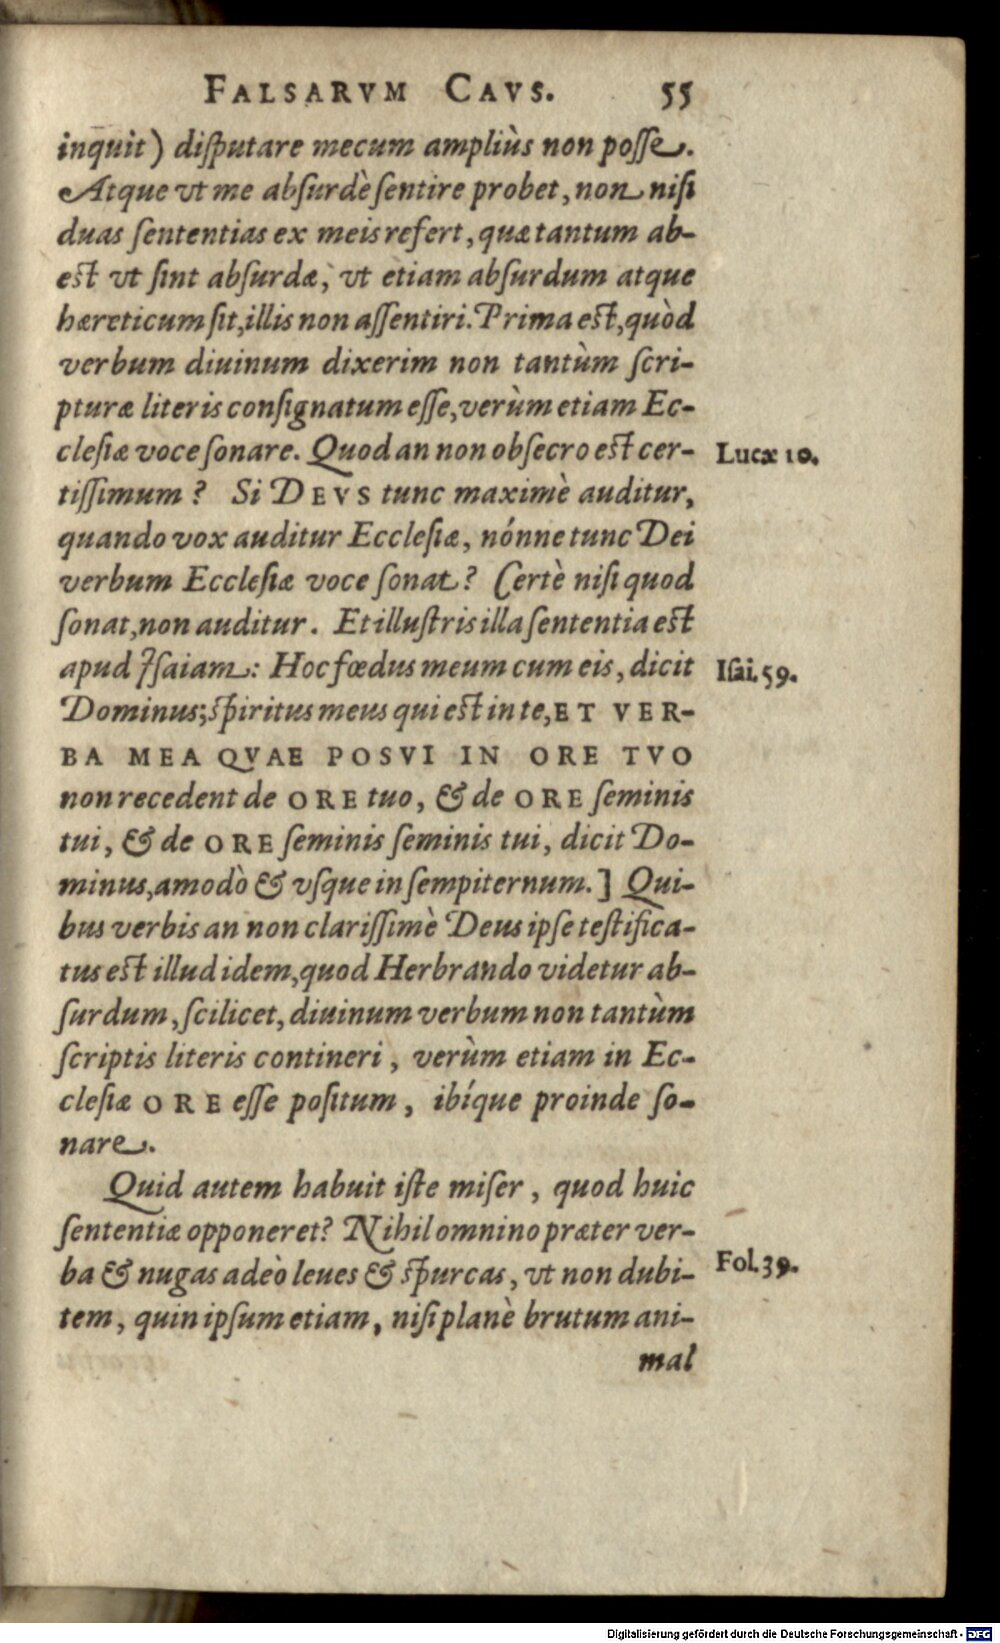 FALSARVM CAVS. 55
inquit) diſputare mecum ampliùs non poſſe.
Atque vt me abſurdè ſentire probet, non niſi
duas ſententias ex meis refert, quæ tantum ab-
eſt vt ſint abſurdæ, vt etiam abſurdum atque
hæreticum ſit, illis non aſſentiri. Prima eſt, quòd
verbum diuinum dixerim non tantùm ſcri-
pturæ literis conſignatum eſſe, verùm etiam Ec-
cleſiæ voce ſonare. Quod an non obſecro eſt cer-
Lucæ 10.
tiſſimum? Si DEVS tunc maximè auditur,
quando vox auditur Eccleſiæ, nónne tunc Dei
verbum Eccleſiæ voce ſonat? Certè niſi quod
ſonat, non auditur. Et illuſtris illa ſententia eſt
apud Iſaiam: Hoc fœdus meum cum eis, dicit
Iſai. 59.
Dominus; ſpiritus meus qui eſt in te, ET VER-
BA MEA QVAE POSVI IN ORE TVO
non recedent de ORE tuo, & de ORE ſeminis
tui, & de ORE ſeminis ſeminis tui, dicit Do-
minus, amodò & vſque in ſempiternum.] Qui-
bus verbis an non clariſſimè Deus ipſe teſtifica-
tus eſt illud idem, quod Herbrando videtur ab-
ſurdum, ſcilicet, diuinum verbum non tantùm
ſcriptis literis contineri, verùm etiam in Ec-
cleſiæ ORE eſſe poſitum, ibíque proinde ſo-
nare.
Quid autem habuit iſte miſer, quod huic
ſententiæ opponeret? Nihil omnino præter ver-
ba & nugas adeò leues & ſpurcas, vt non dubi-
Fol. 39.
tem, quin ipſum etiam, niſi planè brutum ani-
mal
Digitalisierung gefördert durch die Deutsche Forschungsgemeinschaft - DFG